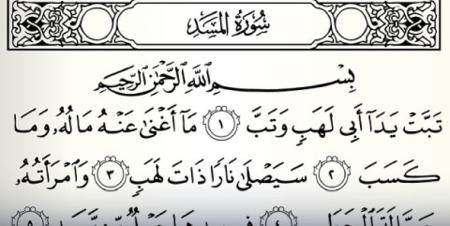 سُورَةُ المَسَدِ
بِسْمِ اللَّهِ الرَّحْمَٰنِ الرَّحِيمِ
تَبَّتْ يَدَآ أَبِي لَهَبٍ وَتَبَّ ١ مَآ أَغْنَىٰ عَنْهُ مَالُهُۥ وَمَا
كَسَبَ ٢ سَيَصْلَىٰ نَارًا ذَاتَ لَهَبٍ ٣ وَٱمْرَأَتُهُۥ